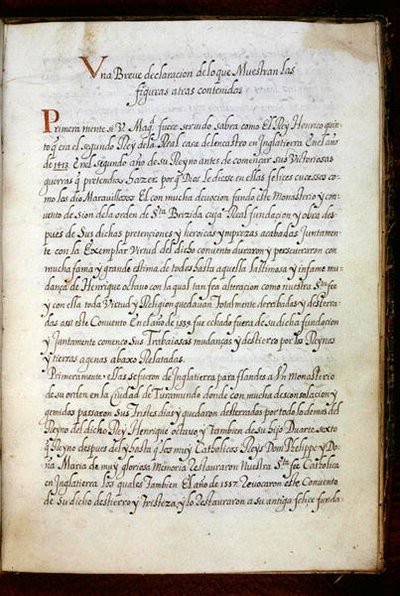 Vna Breve declaracion de lo que Muestran las
figuras atras contenidas
Primera mente si V. Magd. fuere seruido sabra como El Rey Henrico quin-
to q̃ era el segundo Rey de la Real casa de lencastro en Inglatierra En el año
de 1413. En el segundo año de su Reyno antes de començar sus Victoriosas
guerras q̃ pretendio hazer por q̃ Dios le diesse en ellas felices sucessos co-
mo las dio Marauillosas El con mucha deuocion fundo este Monasterio y con-
uento de sion de la orden de Sta Brizida cuja Real fundacion y obra des-
pues de Sus dichas pretenciones y heroicas imprezas acabadas Juntamen-
te con la Exemplar Virtud del dicho conuento duraron y perseueraron con
mucha fama y grande estima de todos hasta aquella lastimosa y infame mu-
dança de Henrique octauo con la qual tan fea alteracion como nuestra Sta fee
y con ella toda Virtud y Religion quedauan Totalmente derribadas y desterra-
das assi este Conuento En el año de 1539. fue echado fuera de su dicha fundacion
y Juntamente començo sus Trabaiosas mudanças y destierro por los Reynos
y tierras agenas abaxo Relatadas.
Primeramente ellas se fueron de Inglatierra para flandes a Vn Monasterio
de su orden en la ciudad de Turamundo donde con mucha desconsolacion y
gemidos passaron Sus Tristes dias y quedaron desterrados por todo lo demas del
Reyno del dicho Rey Henrique octauo y tambien de su hijo Duarte sexto
q̃ Reyno despues del y hasta q̃ los muy Catholicos Reys Dom Phelippe y Do-
ña Maria de muy gloriosa Memoria Restauraron Nuestra Sta fee Catholica
en Inglatierra los quales Tambien El año de 1557. Reuocaron este Conuento
de Su dicho destierro y Tristeza, y lo Restauraron a su antiga felice funda-